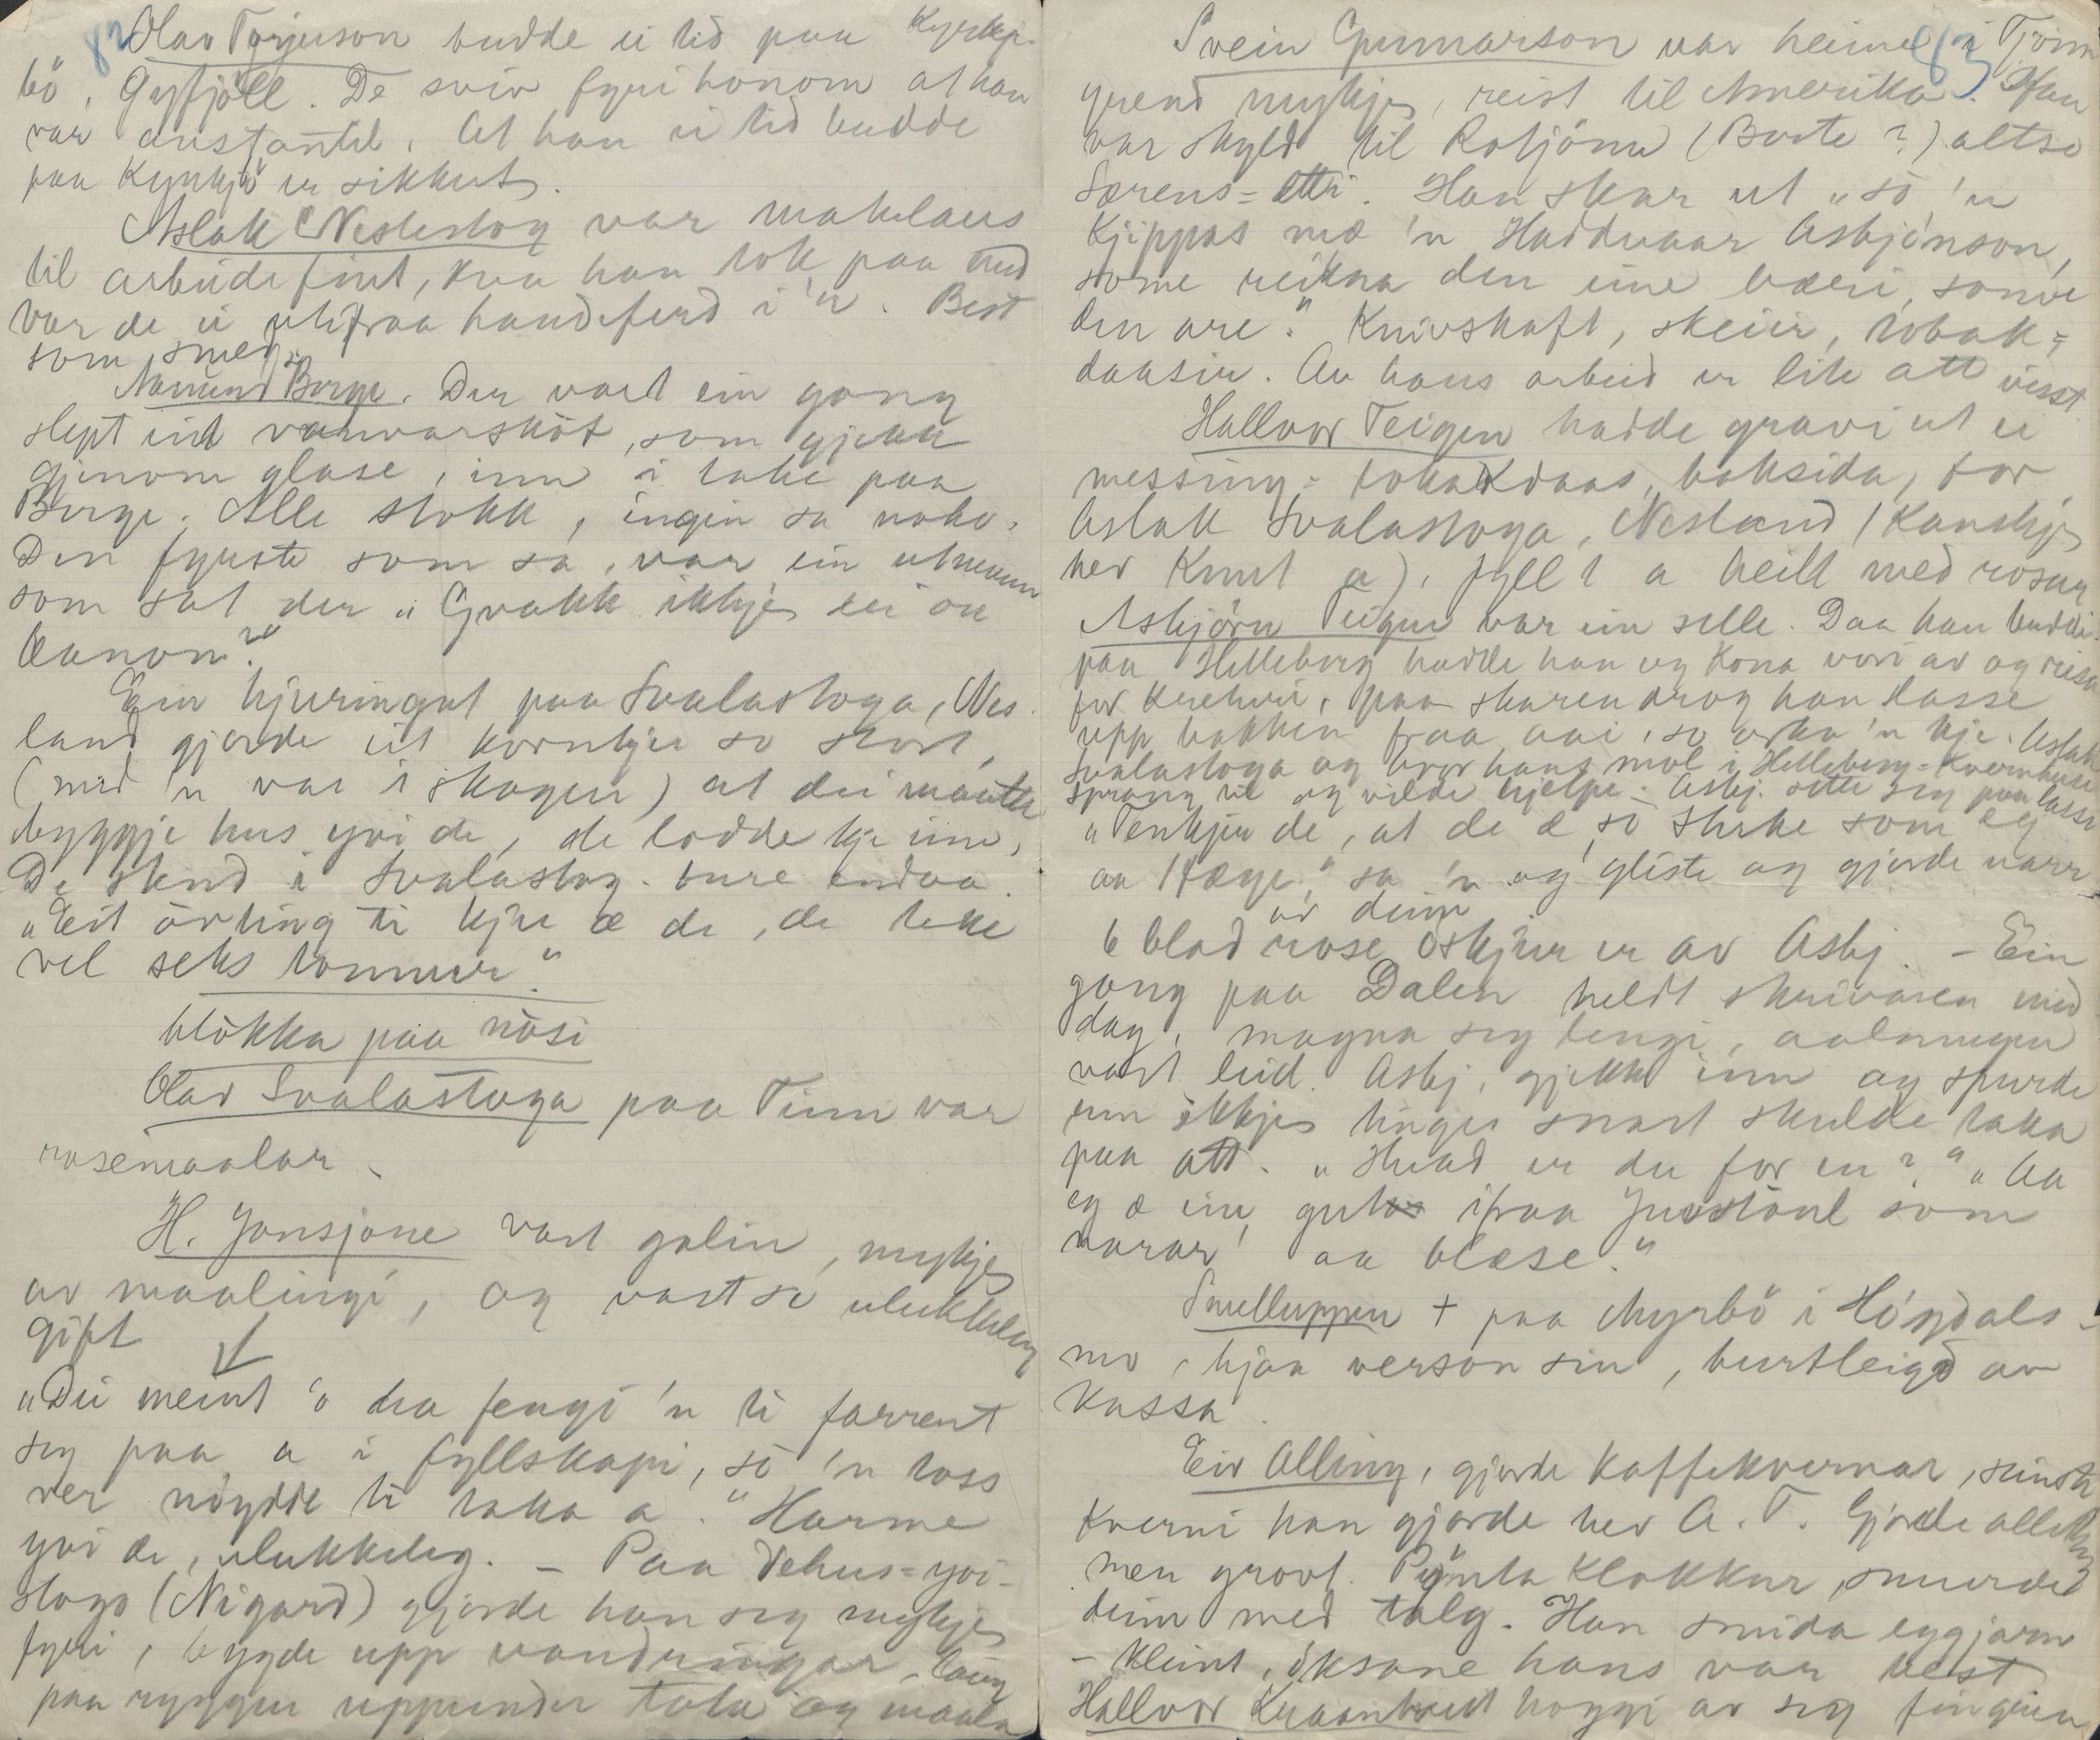 82
Olav Torjuson budde ei tid paa Kyrkje-
bö, Gyfjöll. De sviv fyri honom at han
var austantil. At han ei tid budde
paa Kyrkjö er sikkert.
Aslak Nestestog var makelaus
til arbeide fint, kva han tok paa med
var de ei utifraa handeferd i 'n. Best
som smed.
Aamund Borge. Der vart ein gong
slept eit vaavaarsköt, som gjekk
gjenom glase, inn i take paa
Borge. Alle stokk, ingen sa noko.
Den fyrste som sa, var ein utmann
som sat der „Gvakk ikkje ei ou
baanom?"
Ein hjuringut paa Svalastoga, Nes-
land gjorde eit kornkjer so stort,
(med 'n var i skogen) at dei maatte
byggje hus yvi de, de lodde kje inn,
De stend i Svalastog-bure endaa.
„Eit örting ti kjer æ de, de teke
vel seks tonnur."
blökka paa nösi
Olav Svalastoga paa Tinn var
rosemaalar.
H. Jonsjone vart galin, mykje
av maalingi, og vart so ulukkeleg
gift
„Dei meint 'o ha fengi 'n ti farrent
seg paa a i fyllskapi, so 'n toss
ver nöydde ti taka a." Harme
yvi de, ulukkeleg. – Paa Vehus-yvi-
stogo (Nigard) gjorde han seg mykje
fyri, bygde upp vandringar, laag
paa ryggen uppunder taka og maala
83
Svein Gunnarson var heime i Tjönn
grend mykje, reist til Amerika. Han
var skyld til Rotjönn (Borte?) altso
Sörens-ætti. Han skar ut „so 'n
kjippas mæ 'n Hadduaar Asbjönson,
some reikna den eine bæri, some
den are." Knivskaft, skeier, tobak-
daasir. Av hans arbeid er lite att visst.
Hallvor Teigen hadde gravi ut ei
messing-tobakdaas, baksida, for
Aslak Svalastoga, Nesland (Kanskje
hev Knut a), fyllt a heilt med rosur
Asbjörn Teigen var ein selle. Daa han budde
paa Helleberg hadde han og kona vori av og reisa
for krehvi, paa skaren drog han lasse
upp bakken fraa aai, so orka 'n kje. Aslak
Svalastoga og bror hans mol i Helleberg-kvernhuse
sprang til og vilde hjelpe. Asbj. sette seg paa lasse
„Tenkjer de, at de æ so sterke som eg
aa Hæge," sa 'n og gliste og gjorde narr
av deim
6 blad rose öskjur er av Asbj. – Ein
gong paa Dalen heldt skrivaren mid
dag, magna seg lengi, aalmugen
vart leid. Asbj. gjekk inn og spurde
um ikkje tinge snart skulde taka
paa att. „Hvad er du for en?" „Aa
eg æ ein gut ifraa Juvstöul som
varar aa blæse."
Smelluppen + paa Myrbö i Höydals-
mo, hjaa verson sin, burtleigd av
kassa.
Eiv Olling, gjorde kaffekvernar, seinste
kverni han gjorde hev A. T. Gjorde alleting
men grovt. Pynta klokkur, smurde
deim med talg. Han smida eggjarn
– kleint, öksane hans var best
Hallvor Kraantveit hoggi av seg fingren